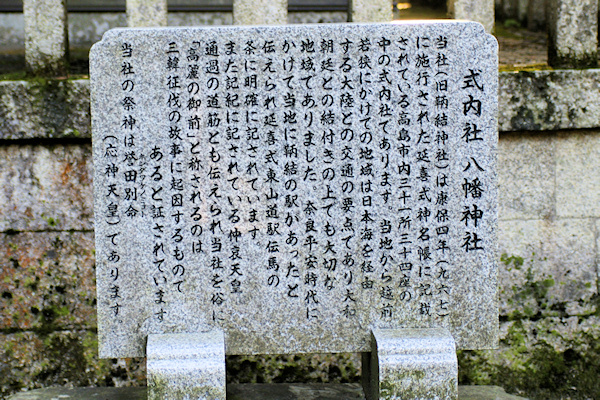 式内社 八幡神社
当社（旧鞆結神社）は康保四年（九六七）
に施行された延喜式神名帳に記載
されている高島市内三十二所三十四座の
中の式内社であります 当地から越前
若狭にかけての地域は日本海を経由
する大陸との交通の要点であり大和
朝廷との結付きの上でも大切な
地域でありました。奈良平安時代に
かけて当地に鞆結の駅があったと
伝えられ延喜式東山道駅伝馬の
条に明確に記されています
また記紀に記されている仲哀天皇
通過の道筋とも伝えられ当社を俗に
「高麗の御前」と称されるのは
三韓征伐の故事に起因するもので
あると証されています
当社の祭神は誉田別命
（応神天皇）であります。